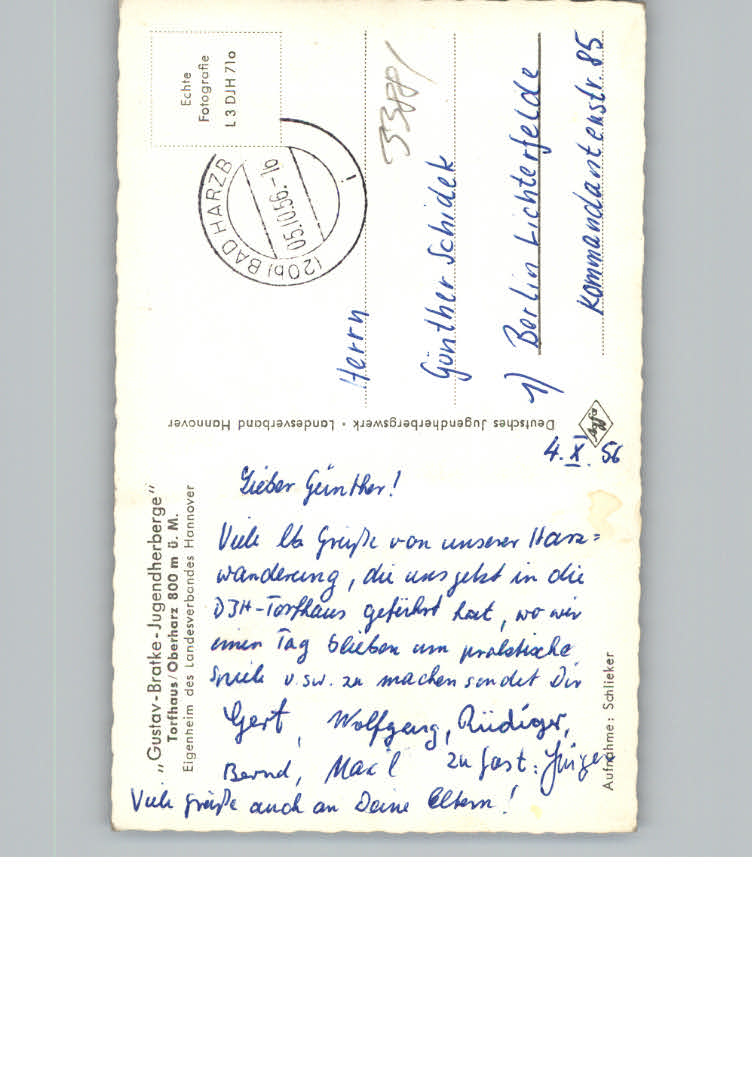 „Gustav-Bratke-Jugendherberge"
Torfhaus/Oberharz 800 m ü. M.
Eigenheim des Landesverbandes Hannover
4. X. 56
Lieber Günther!
Viele lb Grüße von unserer Harz=
wanderung, die uns jetzt in die
DJH-Torfhaus geführt hat, wo wir
einen Tag blieben um praktische
Spiele u.sw. zu machen sendet Dir
Gert, Wolfgang, Rüdiger,
Bernd, Max zu Gast: Jürgen
Viele Grüße auch an Deine Eltern!
Aufnahme: Schlieker
Deutsches Jugendherbergswerk · Landesverband Hannover
Agfa
Echte
Fotografie
L 3 DJH 71o
(20b) BAD HARZB
05.10.56.-16
i
33881
Herrn
Günther Schidek
1) Berlin Lichterfelde
Kommandantenstr. 85